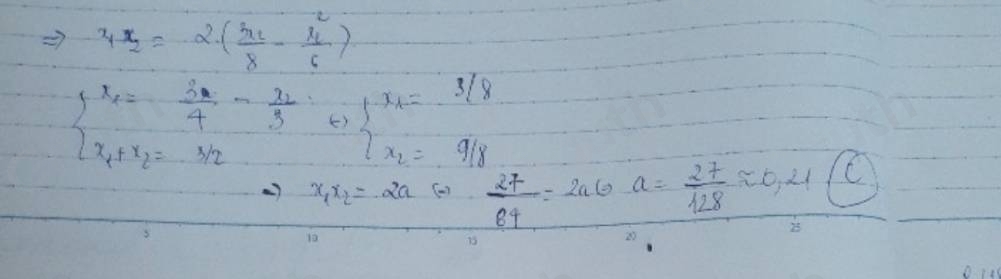 ⇒ x₁x₂ = 2.(3x₂/8 - x₂²/6)
{ x₁ = 3/4 - x₂/3 (-) { x₁ = 3/8
{ x₁+x₂ = 3/2 { x₂ = 9/8
⇒ x₁x₂ = 2a (-) 27/64 = 2a (-) a = 27/128 ≈ 0,21 C
5 10 15 20 25